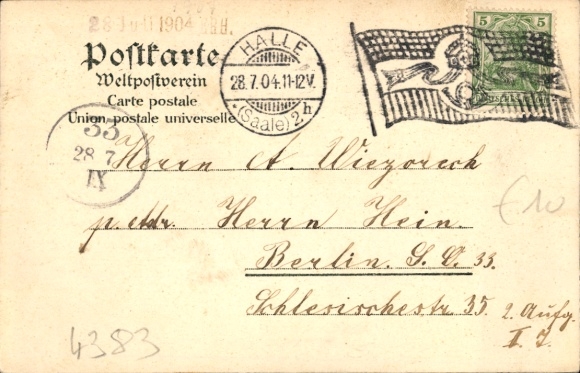 28 Juli 1904
Postkarte
Weltpostverein
Carte postale
Union postale universelle
HALLE
28.7.04.11-12V.
*(Saale)2h
5 5
33
28 7
IX
Herrn A. Wiezoreck
p. Adr. Herrn Hein.
Berlin. S. O. 33.
Schlesischestr. 35.
2. Aufg.
I. T.
€10
4383